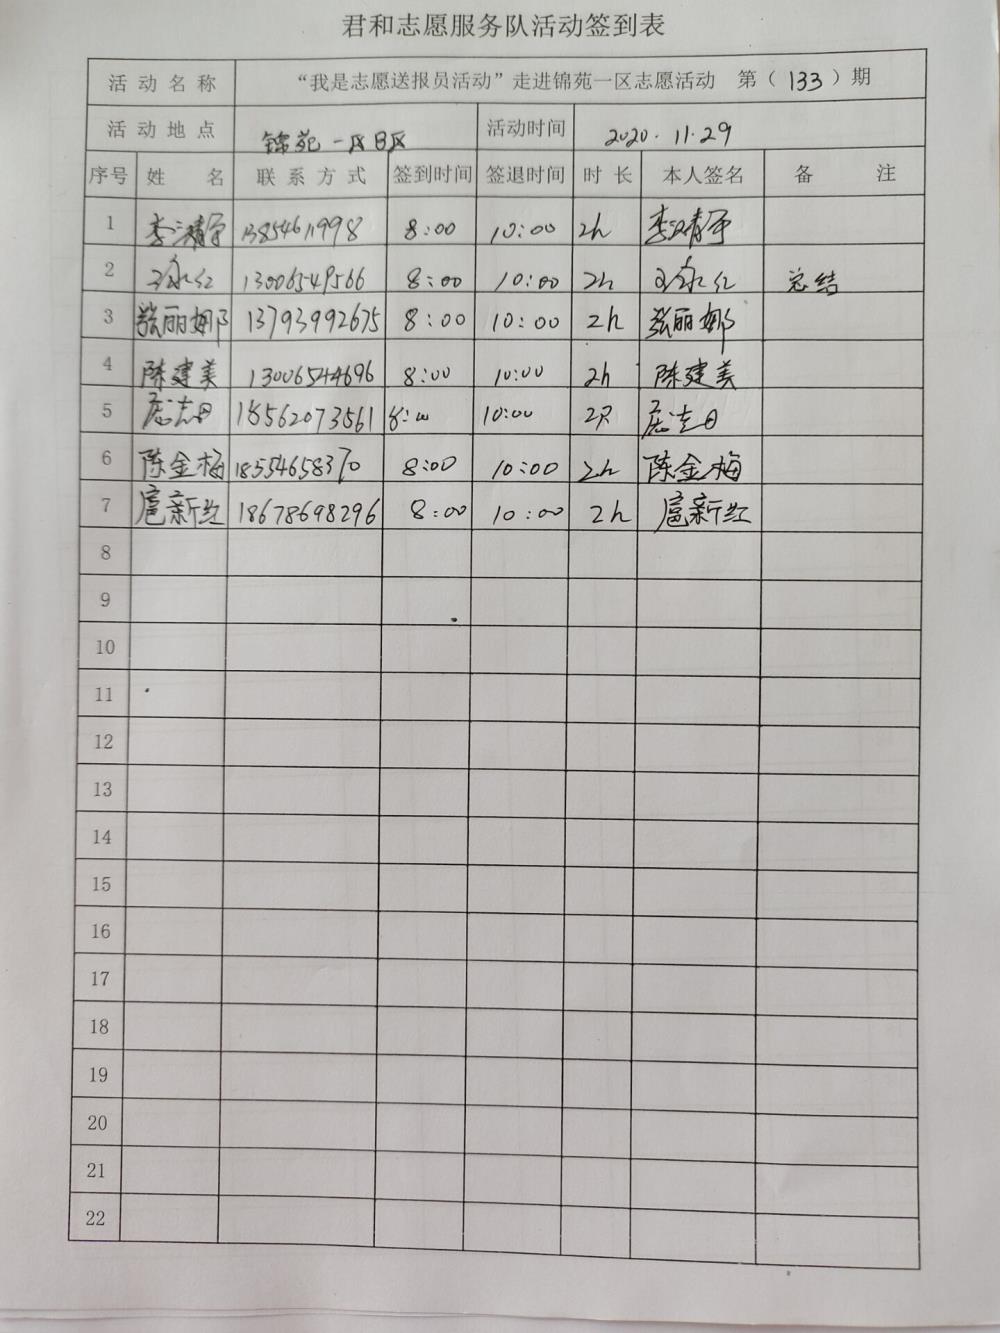 君和志愿服务队活动签到表
活动名称 “我是志愿送报员活动”走进锦苑一区志愿活动 第（133）期
活动地点 锦苑一区B区 活动时间 2020.11.29
序号 姓名 联系方式 签到时间 签退时间 时长 本人签名 备注
1 李汉青 13854611998 8:00 10:00 2h 李汉青
2 王永红 13006549566 8:00 10:00 2h 王永红 总结
3 张丽娜 13793992675 8:00 10:00 2h 张丽娜
4 陈建美 13006544696 8:00 10:00 2h 陈建美
5 18562073561 8:00 10:00
6 陈金梅 18554658370 8:00 10:00 2h 陈金梅
7 扈新红 18678698296 8:00 10:00 2h 扈新红
8
9
10
11
12
13
14
15
16
17
18
19
20
21
22